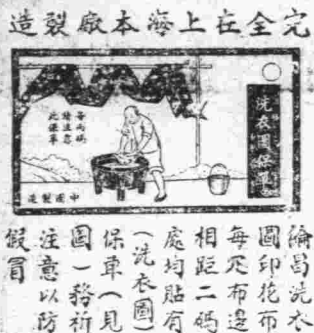 完全在上海本廠製造
洗衣圖保單
每兩碼
請注意
此保單
中國製造
倫昌洗衣
圖印花布
每疋布邊
相距二碼
處均貼有
（洗衣圖）
保單（見
圖）務祈
注意以防
假冒